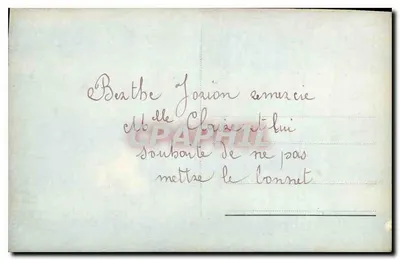 Berthe Jorion remercie
Melle et lui
souhaite de ne pas
mettre le bonnet.
CPAPHIL